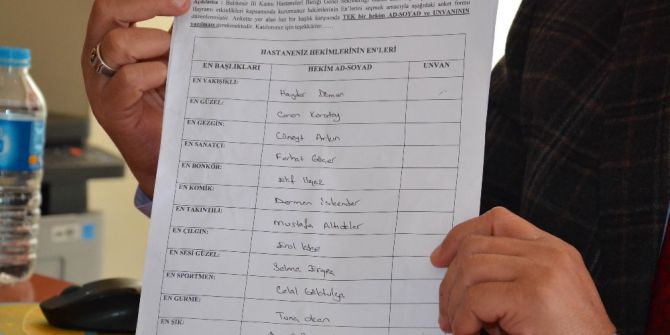 Açıklama : Balıkesir İli Kamu Hastaneleri Birliği Genel
Bayramı etkinlikleri kapsamında kurumumuz hekimlerinin En'lerini seçmek amacıyla aşağıdaki anket formu
düzenlenmiştir. Ankette yer alan her bir başlık karşısında TEK bir hekim AD-SOYAD ve UNVANININ
yazılması gerekmektedir. Katılımınız için teşekkürler......
HASTANENİZ HEKİMLERİNİN EN'LERİ
EN BAŞLIKLARI HEKİM AD-SOYAD UNVAN
EN YAKIŞIKLI: Haydar Dümen
EN GÜZEL: Canan Karatay
EN GEZGİN: Cüneyt Arkın
EN SANATÇI: Ferhat Göçer
EN BONKÖR: Elif Ilgaz
EN KOMİK: Derman İskender
EN TAKINTILI: Mustafa Altıoklar
EN ÇILGIN: Erol Köse
EN SESİ GÜZEL: Selma
EN SPORTMEN: Celal
EN GURME: Tuna
EN ŞIK: